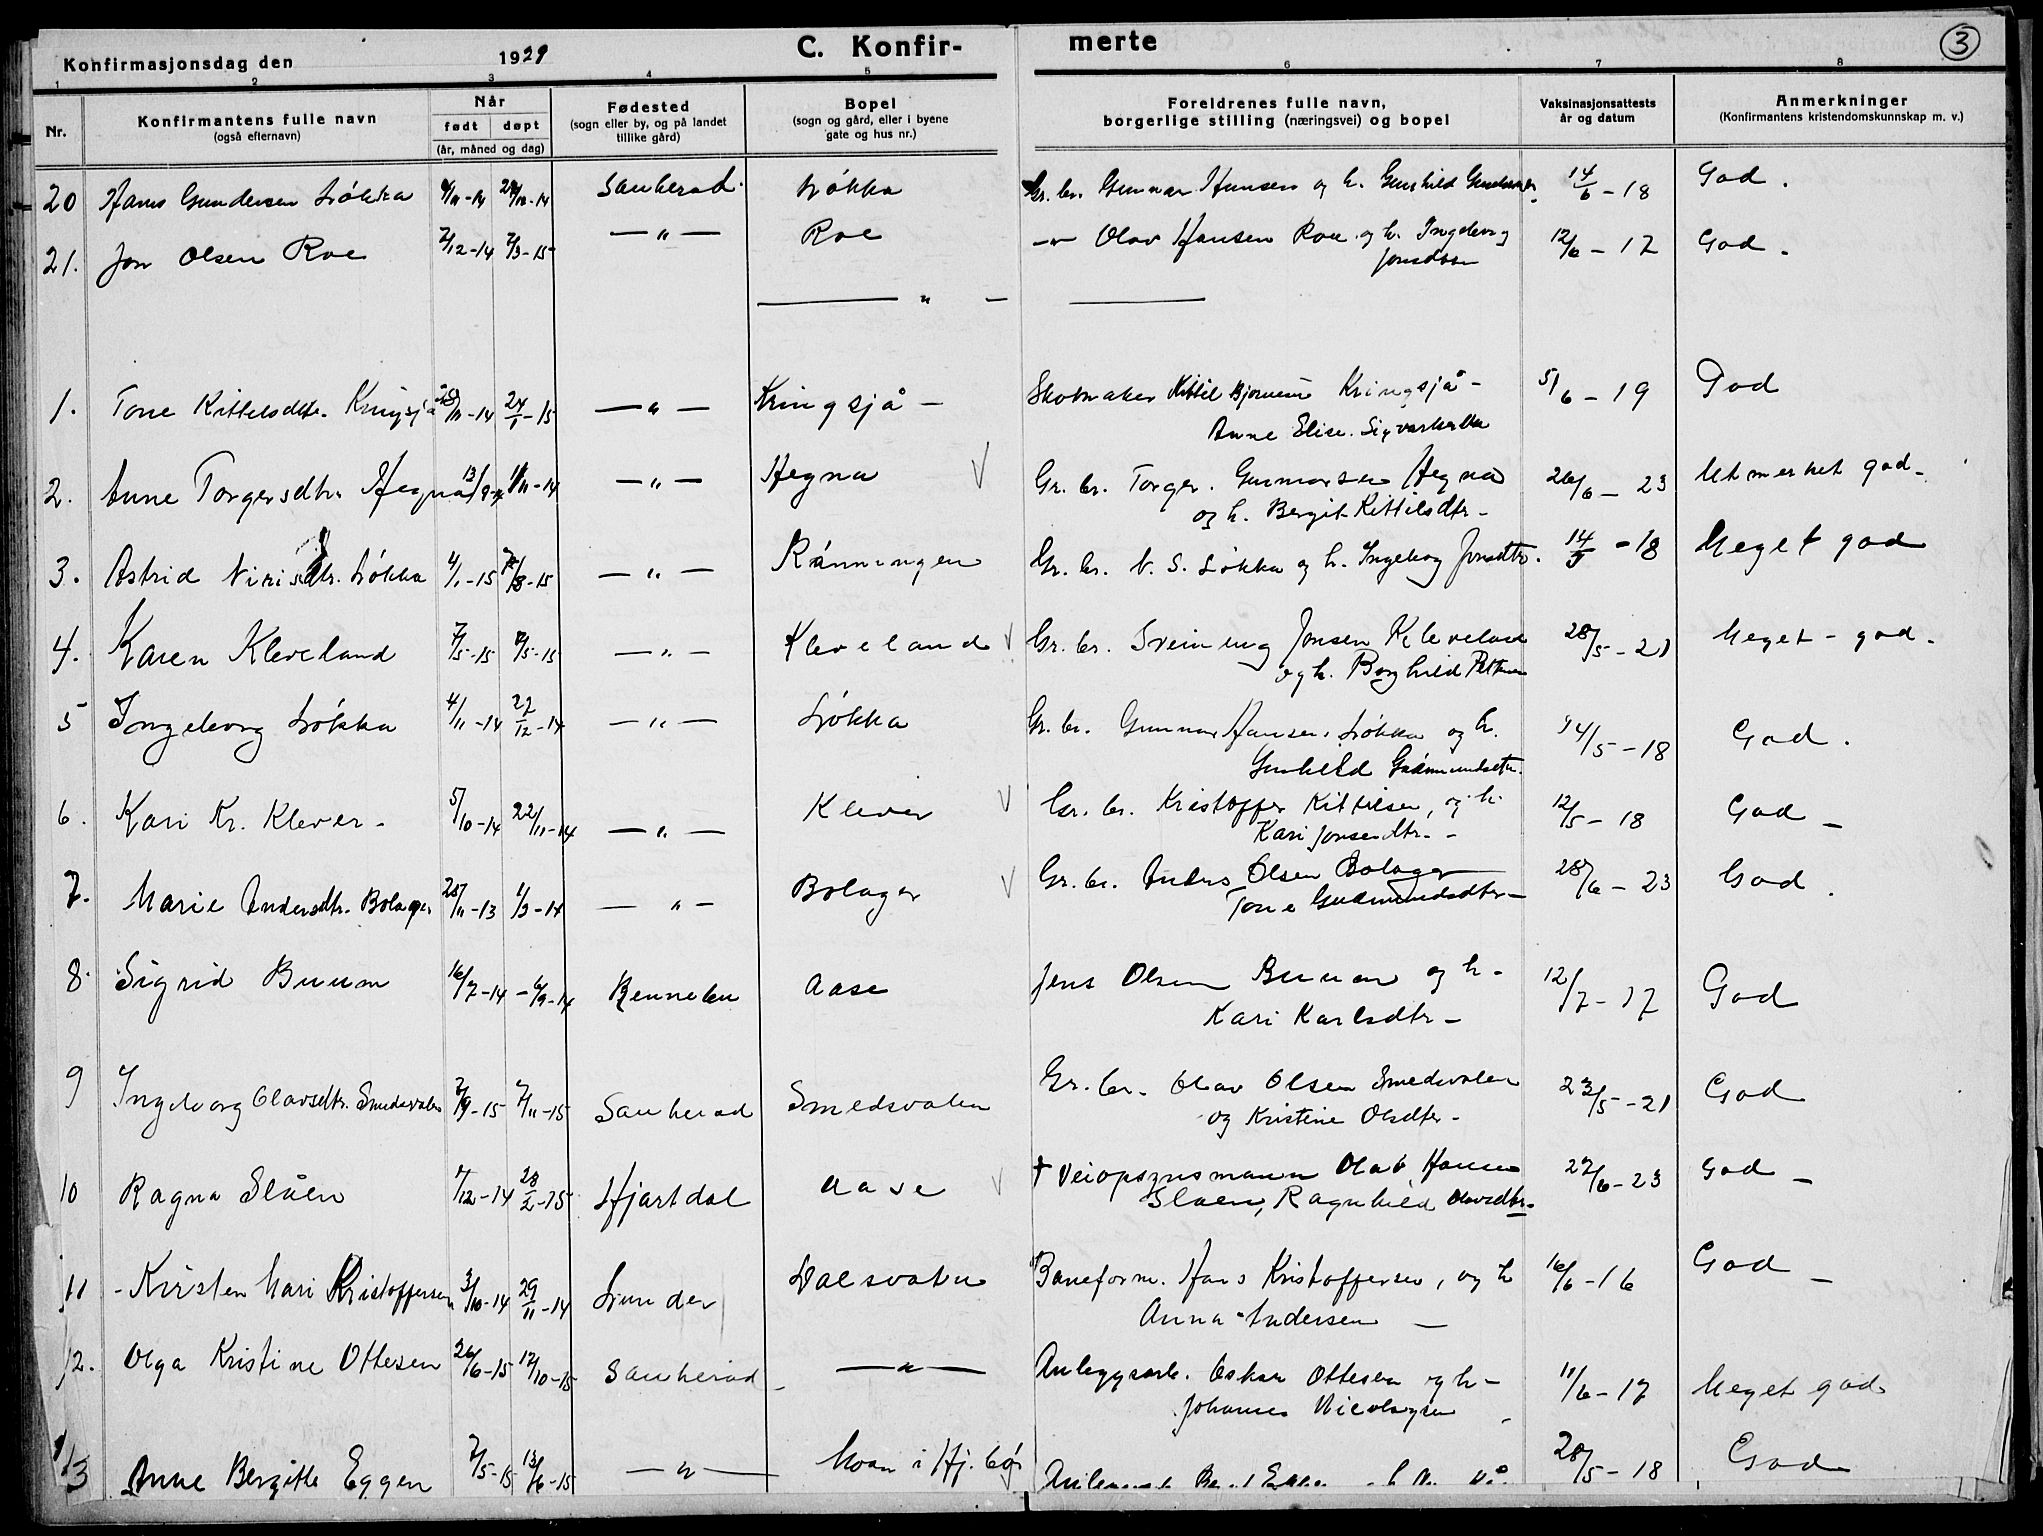 C. Konfirmerte
3
Konfirmasjonsdag den 1929
1 2 3 4 5 6 7 8
Nr. Konfirmantens fulle navn (også efternavn) Når født døpt (år, måned og dag) Fødested (sogn eller by, og på landet tillike gård) Bopel (sogn og gård, eller i byene gate og hus nr.) Foreldrenes fulle navn, borgerlige stilling (næringsvei) og bopel Vaksinasjonsattests år og datum Anmerkninger (Konfirmantens kristendomskunnskap m. v.)
20 Hans Gundersen Løkka Sauherad. Løkka Gr. br. Gunnar Hansen og h. Gunhild 14/6 - 18 God.
21. Jon Olsen Roe 2/12-14 7/3-15 — " — Roe — " — Olav Hansen Roe og h. Ingeborg 12/6 - 17 God.
Jonsdtr
— " —
1. Tone Kittelsdtr. Kringsjå 24/1-15 — " — Kringsjå — Skomaker Kittil Bjørnsen Kringsjå — 5/6 - 19 God
Anne Elise
2. Anne Torgersdtr. Hegna — " — Hegna Gr. br. Torger Gunnarsen Hegna 26/6 - 23 Utmerket god -
og h. Bergit Kittilsdtr -
3. Astrid Løkka 4/1-15 — " — Rønningen Gr. br. N. S. Løkka og h. Ingeborg Jonsdtr. - 18 Meget god
4. Karen Kleveland 7/5-15 — " — Kleveland Gr. br. Sveinung Jonsen Kleveland 28/5 - 21 Meget - god -
og h. Borghild
5 Ingeborg Løkka 4/11-14 27/12-14 — " — Løkka Gr. br. Gunnar Hansen Løkka og h. 14/5 - 18 God.
Gunhild Gudmundsdtr.
6. Kari Kr. Klever - 5/10-14 22/11-14 — " — Klever Gr. br. Kristoffer Kittilsen, og h. 12/5 - 18 God -
Kari Jonsendtr. -
7. Marie Andersdtr. Bolager 1/3-14 — " — Bolager Gr. br. Anders Olsen Bolager 28/6 - 23 God.
Tone Gudmundsdtr -
8. Sigrid Buum 16/7-14 - 6/9-14 Aase Jens Olsen Buum og h - 12/7 - 17 God
Kari Karlsdtr -
9 Ingeborg Olavsdtr. Smedsvalen 7/11-15 Sauherad Smedsvalen Gr. br. Olav Olsen Smedsvalen 23/5 - 21 God
og Kristine Olsdter -
10 Ragna Slåen 28/2-15 Hjartdal Aase † Veiopsynsmann Olav Hansen 27/6 - 23 God -
Slåen, Ragnhild Olavsdtr.
11 - Kirsten Mari Kristoffersen 3/10-14 29/11-14 Lunder Dalsvatn Baneform. Hans Kristoffersen, og h 16/6 - 16 God -
Anna Andersen -
12. Olga Kristine Ottesen 26/6-15 17/10-15 Sauherad — " — Anleggsarb. Oskar Ottesen og h - 11/6 - 17 Meget god.
13 Anne Bergitte Eggen 7/5-15 13/6-15 — " — Moen i Hj. bø 28/5 - 18 God